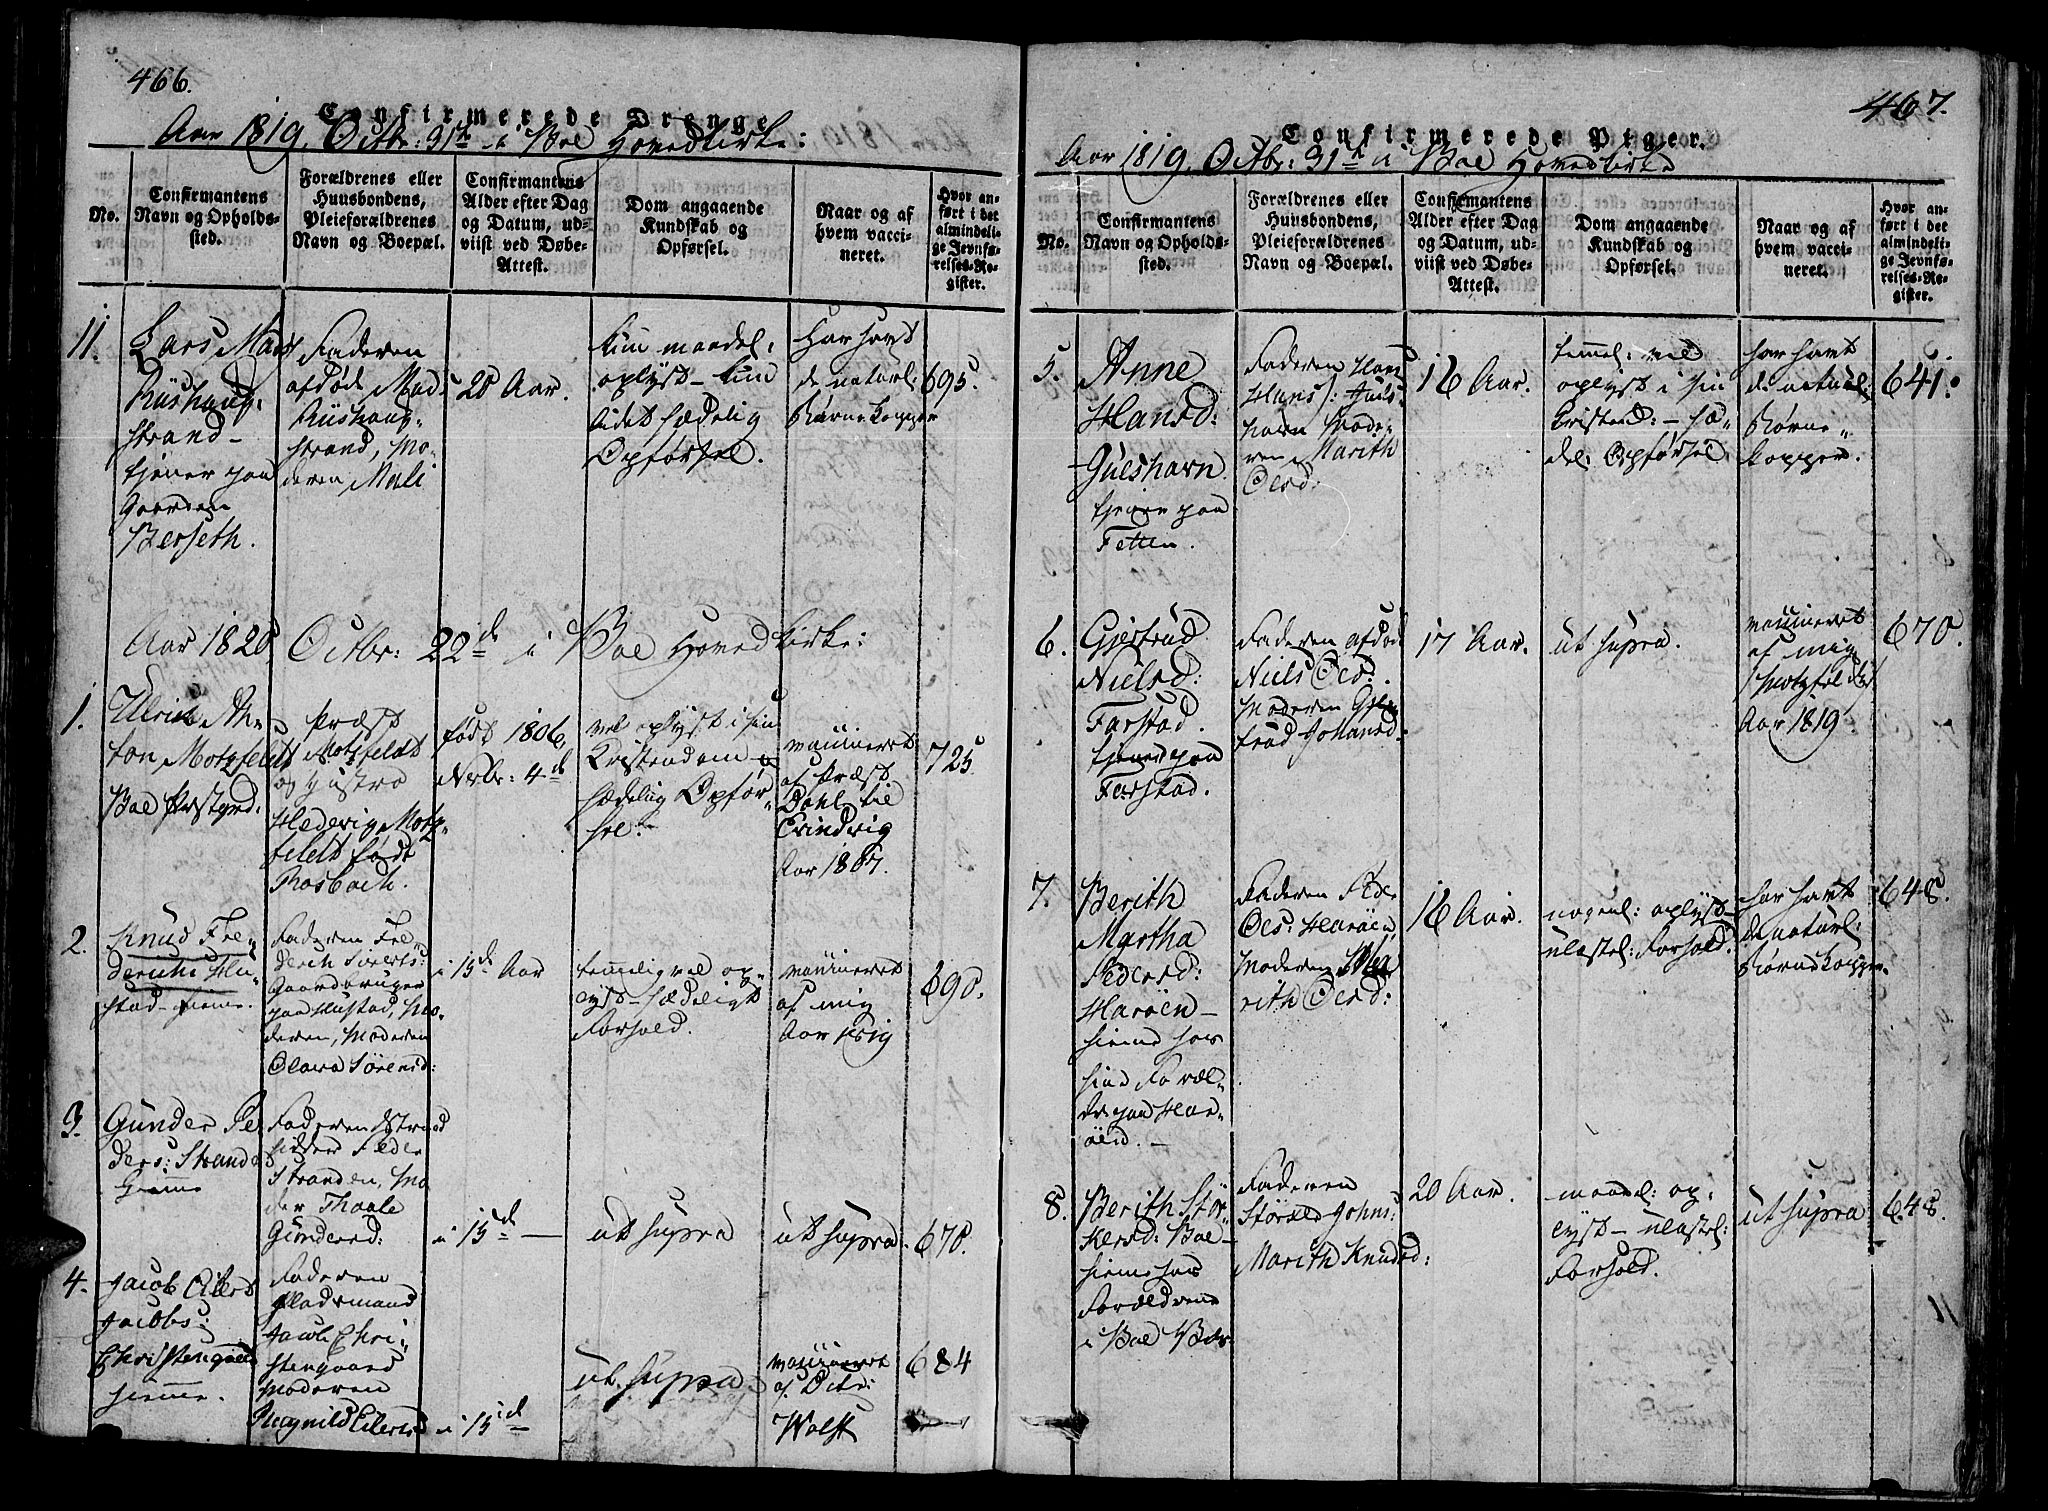 466.
Confirmerede Drenge
Aar 1819. Octbr: 31te i Boe Hovedkirke:
No.
Confirmantens
Navn og Opholds-
sted.
Forældrenes eller
Huusbondens,
Pleieforældrenes
Navn og Boepæl.
Confirmantens
Alder efter Dag
og Datum, ud-
viist ved Døbe-
Attest.
Dom angaaende
Kundskab og
Opførsel.
Naar og af
hvem vacci-
neret.
Hvor an-
ført i det
almindeli-
ge Jevnfø-
relses-Re-
gister.
11.
Lars Mads
strand
tjener paa
Gaarden
Berseth.
Faderen
afdøde Mads
strand, Mo-
deren Mali
20 Aar.
kun maadel:
oplyst - kun
lidet sædelig
Opførsel.
Har havt
de naturl:
Børnekopper
695.
Aar 1820 Octbr: 22de i Boe Hovedkirke:
1.
Ulrich An-
ton Motzfeldt
Boe Præstgrd:
Præst
Motzfeldt
og Hustro
Hedevig Motz-
feldt født
Rosbach.
født 1806,
Novbr: 4de
vel oplyst i sin
Kristendom -
sædelig Opfør-
sel.
vaccineret
af Præst
Dahl til
Evindvig
Aar 1807.
725.
2.
Knud Fre-
derichs: Hu-
stad - hieme.
Faderen Fre-
derich Siverts:
Gaardbruger
paa Hustad, Mo-
deren, Moderen
Olava Sørensd:
i 15de Aar
temmelig vel op-
lyst - sædeligt
Forhold.
vaccineret
af mig
Aar 1819
690.
3.
Gunder Pe-
ders: Stranden
hieme
Faderen Strand
sidder Peder
Stranden, Mo-
der Thaale
Gundersd:
i 15de -
ut supra
ut supra.
670.
4.
Jacob Eilert
Jacobs:
Christengaard
hieme.
Faderen
Jacob Chri-
stengaard
Moderen
Ragnild Eilertsd
i 15de
ut supra
vaccineret
af
Wolst
684
467.
Confirmerede Piger.
Aar 1819. Octbr: 31te i Boe Hovedkirke
No.
Confirmantens
Navn og Opholds-
sted.
Forældrenes eller
Huusbondens,
Pleieforældrenes
Navn og Boepæl.
Confirmantens
Alder efter Dag
og Datum, ud-
viist ved Døbe-
Attest.
Dom angaaende
Kundskab og
Opførsel.
Naar og af
hvem vacci-
neret.
Hvor an-
ført i det
almindeli-
ge Jevnfø-
relses-Re-
gister.
5.
Anne
Hansd:
Gulshavn
tjener paa
Tetten.
Faderen Hans
Hans: Guls-
havn Mode-
ren Marith
Olsd:
16 Aar.
temmel: vel
oplyst i sin
Cristend: - sæ-
del: Opførsel
har havt
de naturl:
Børne-
kopper.
641.
6.
Gjertrud
Nielsd:
Farstad
tjener paa
Farstad.
Faderen afdøde
Niels Olsd:
Moderen Gjer-
trud Johansd:
17 Aar.
ut supra.
vaccineret
af mig
Motzfeldt
Aar 1819.
670.
7.
Berith
Martha
Pedersd:
Harøen -
hieme hos
sine Foræl-
dre paa Har-
øen. -
Faderen Peder
Ols: Harøen,
Moderen Ma-
rith Olsd:
16 Aar.
nogenl: oplyst -
ulastel: Forhold.
har havt
de naturl:
Børnekopper.
648.
8.
Berith Stor-
kersd: Boe -
hieme hos
Forældrene
i Boe
Faderen
Johns:
Marith Knudsd:
20 Aar.
maadel: op-
lyst - ulastel:
Forhold.
ut supra
648.